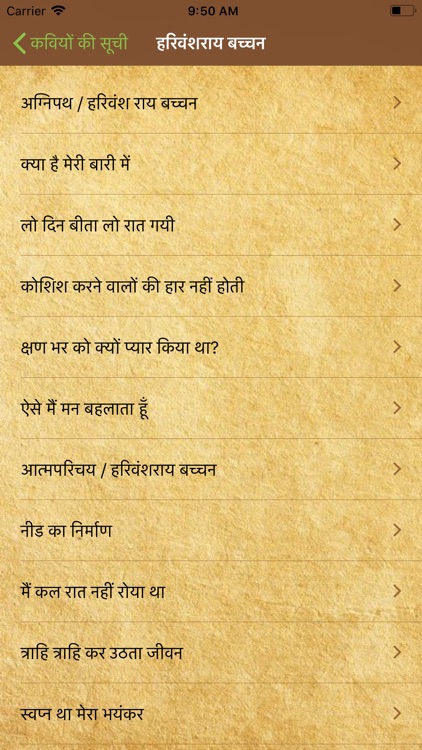 Carrier 9:50 AM
कवियों की सूची हरिवंशराय बच्चन
अग्निपथ / हरिवंश राय बच्चन
क्या है मेरी बारी में
लो दिन बीता लो रात गयी
कोशिश करने वालों की हार नहीं होती
क्षण भर को क्यों प्यार किया था?
ऐसे मैं मन बहलाता हूँ
आत्मपरिचय / हरिवंशराय बच्चन
नीड का निर्माण
मैं कल रात नहीं रोया था
त्राहि त्राहि कर उठता जीवन
स्वप्न था मेरा भयंकर